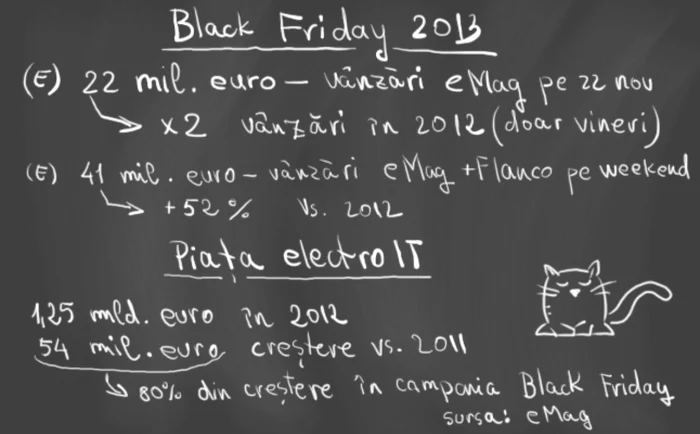 Black Friday 2013
(E) 22 mil. euro – vânzări eMag pe 22 nov
x2 vânzări în 2012 (doar vineri)
(E) 41 mil. euro – vânzări eMag + Flanco pe weekend
+52% Vs. 2012
Piața electro IT
1,25 mld. euro în 2012
54 mil. euro creștere vs. 2011
80% din creștere în campania Black Friday
sursa: eMag